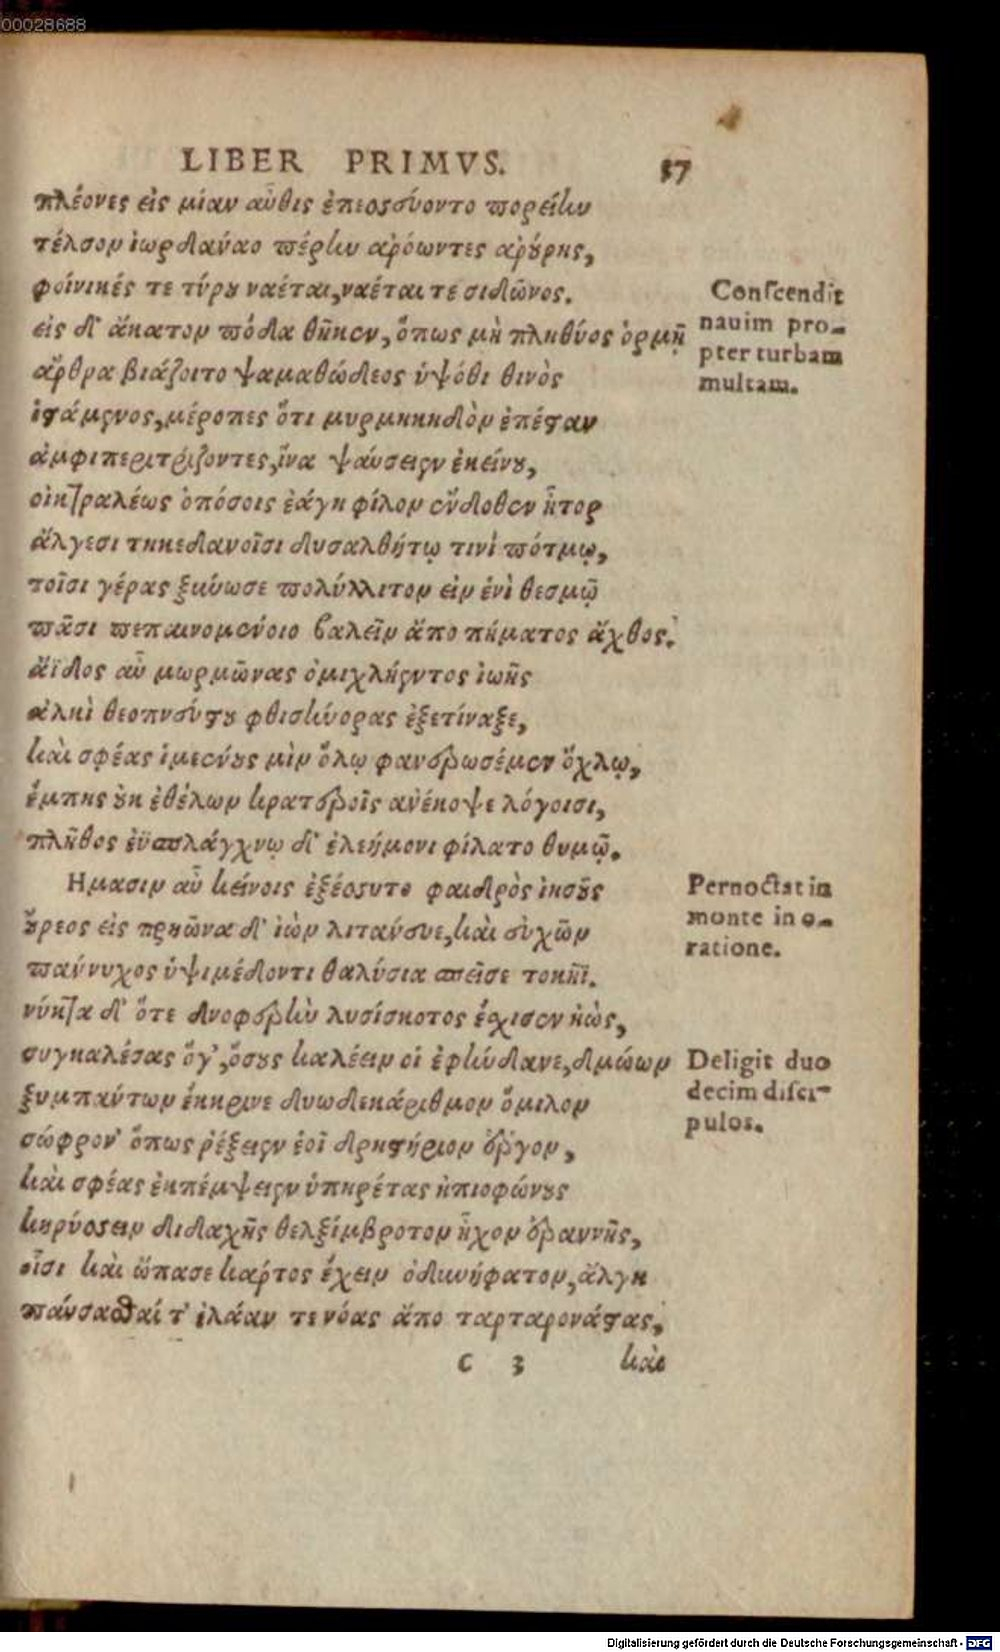 00028688
LIBER PRIMVS. 37
πλέονες εἰς μίαν αὖθις ἐπεσσύοντο πορείην
τέλσον ἰωρδανάο πέρην ἀρόωντες ἀρούρης,
φοίνικές τε τύρου ναέται, ναέται τε σιδῶνος.
εἰς δ' ἄκατον πόδα θῆκεν, ὅπως μὴ πληθύος ὁρμῇ
ἄρθρα βιάζοιτο ψαμαθώδεος ὑψόθι θινὸς
ἱστάμενος, μέροπες ὅτι μυρμηκηδὸν ἐπέσταν
ἀμφιπεριτρίζοντες, ἵνα ψαύσειεν ἐκείνου,
οἰκτραλέως ὁπόσοις ἐάγη φίλον ἔνδοθεν ἦτορ
ἄλγεσι τηκεδανοῖσι δυσαλθήτῳ τινὶ πότμῳ,
τοῖσι γέρας ξύνωσε πολύλλιτον εἰν ἑνὶ θεσμῷ
πᾶσι πεπαινομένοιο βαλεῖν ἄπο πήματος ἄχθος.
ἄϊδος αὖ μορμῶνας ὀμιχλήεντος ἰωῆς
ἀλκὶ θεοπνεύστου φθισήνορας ἐξετίναξε,
καὶ σφέας ἱμένους μὶν ὅλῳ φανερωσέμεν ὄχλῳ,
ἔμπης οὐκ ἐθέλων κρατεροῖς ἀνέκοψε λόγοισι,
πλῆθος ἐϋσπλάγχνῳ δ' ἐλεήμονι φίλατο θυμῷ.
Ημασιν αὖ κείνοις ἐξέσσυτο φαιδρὸς ἰησοῦς
οὔρεος εἰς πρηῶνα δ' ἰὼν λιτάνευε, καὶ εὐχῶν
πάννυχος ὑψιμέδοντι θαλύσια σπεῖσε τοκῆϊ.
νύκτα δ' ὅτε δνοφερὴν λυσίσκοτος ἔσχισεν ἠὼς,
συγκαλέσας ὅγ', ὅσους καλέειν οἱ ἐφήνδανε, δμώων
ξυμπάντων ἔκκρινε δυωδεκάριθμον ὅμιλον
σώφρον' ὅπως ῥέξειεν ἑοῖ δρηστήριον ἔργον,
καὶ σφέας ἐκπέμψειεν ὑπηρέτας ἠπιοφώνους
κηρύσσειν διδαχῆς θελξίμβροτον ἦχον ἐραννῆς,
οἷσι καὶ ὤπασε κάρτος ἔχειν ὀδυνήφατον, ἄλγη
παύσασθαί τ' ἐλάαν τε νόας ἄπο ταρταρονάστας,
C 3 καὶ
Conscendit
nauim pro-
pter turbam
multam.
Pernoctat in
monte in o-
ratione.
Deligit duo
decim disci-
pulos.
Digitalisierung gefördert durch die Deutsche Forschungsgemeinschaft - DFG